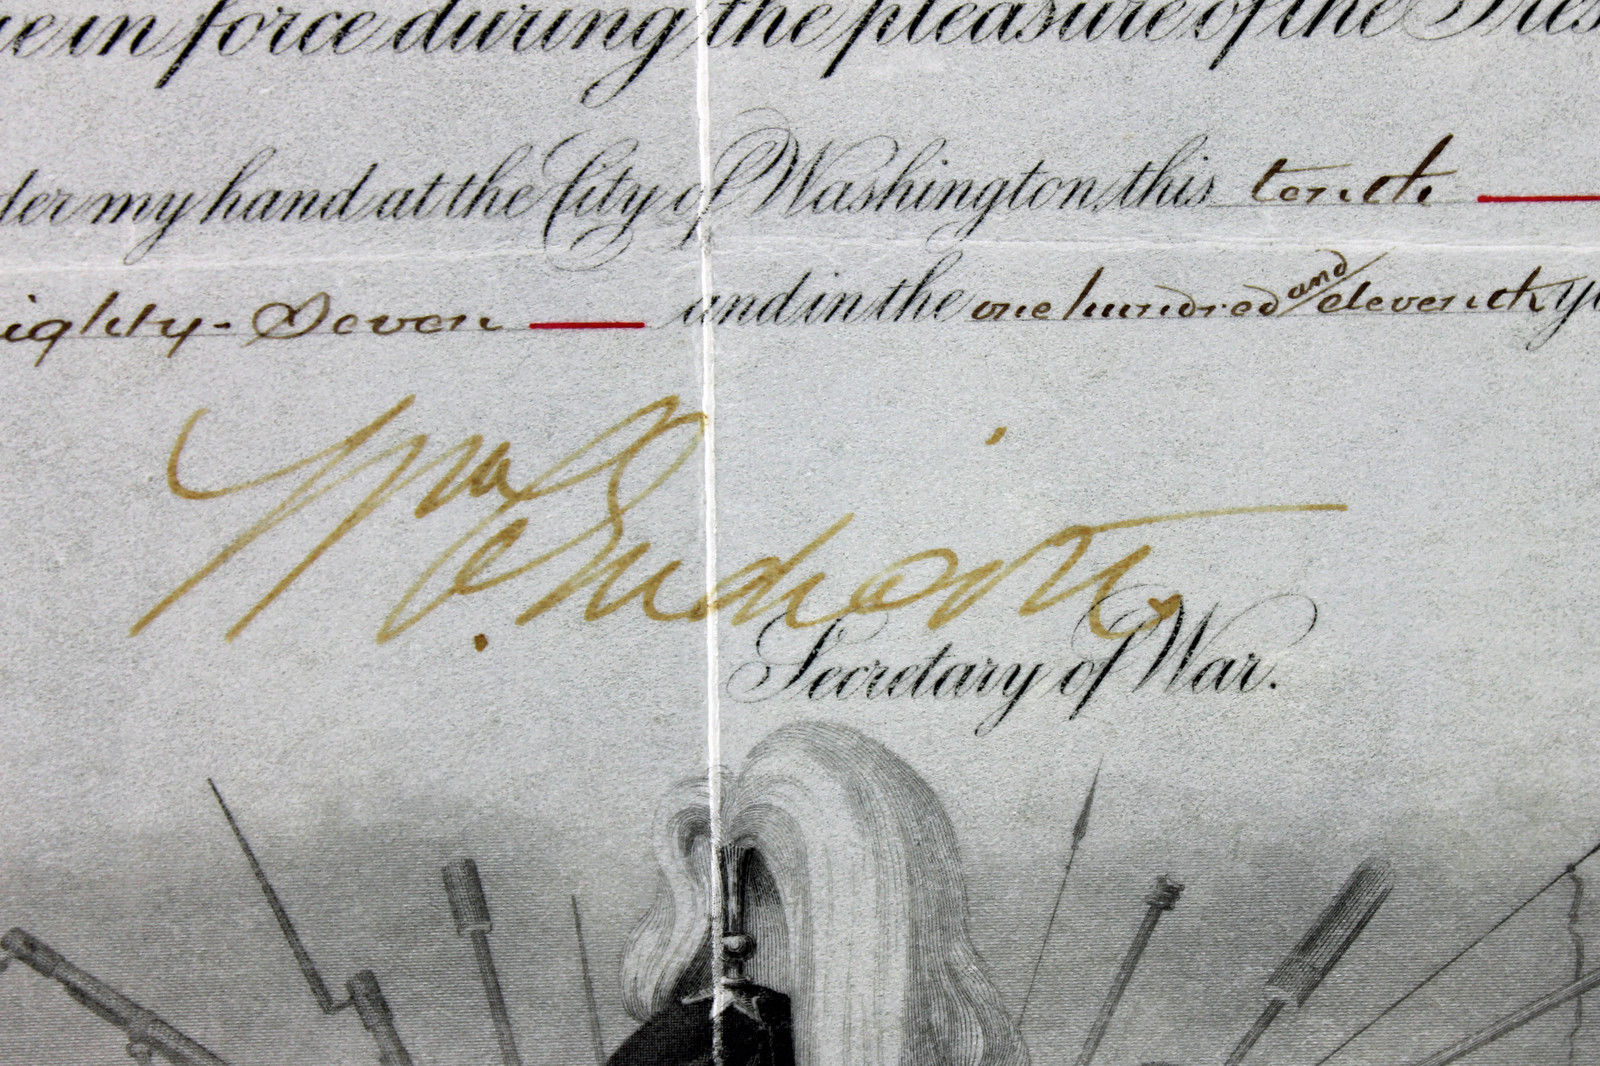 in force during the pleasure of the Pres
der my hand at the City of Washington, this tenth
ighty-Seven and in the one hundred and eleventh y
Wm C. Endicott
Secretary of War.